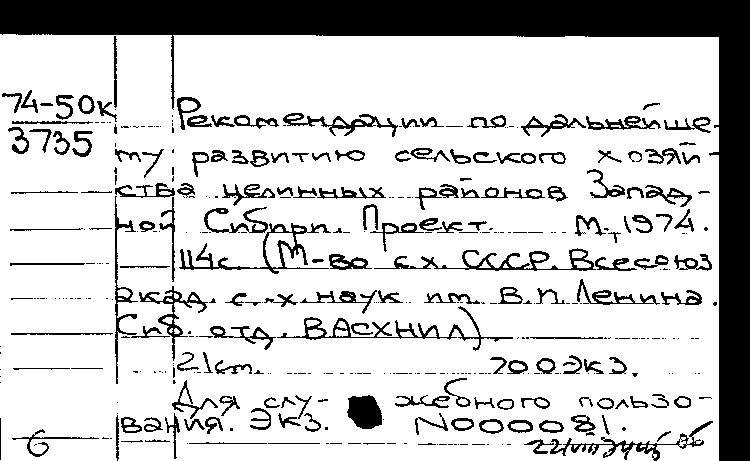 74-50к
3735
Рекомендации по дальнейше-
му развитию сельского хозяй-
ства целинных районов Запад-
ной Сибири. Проект. М., 1974.
114с. (М-во с.х. СССР. Всесоюз
акад. с.-х. наук им. В.П. Ленина.
Сиб. отд. ВАСХНИЛ).
21см. 700экз.
Для слу- жебного пользо-
вания. Экз. №000081.
6